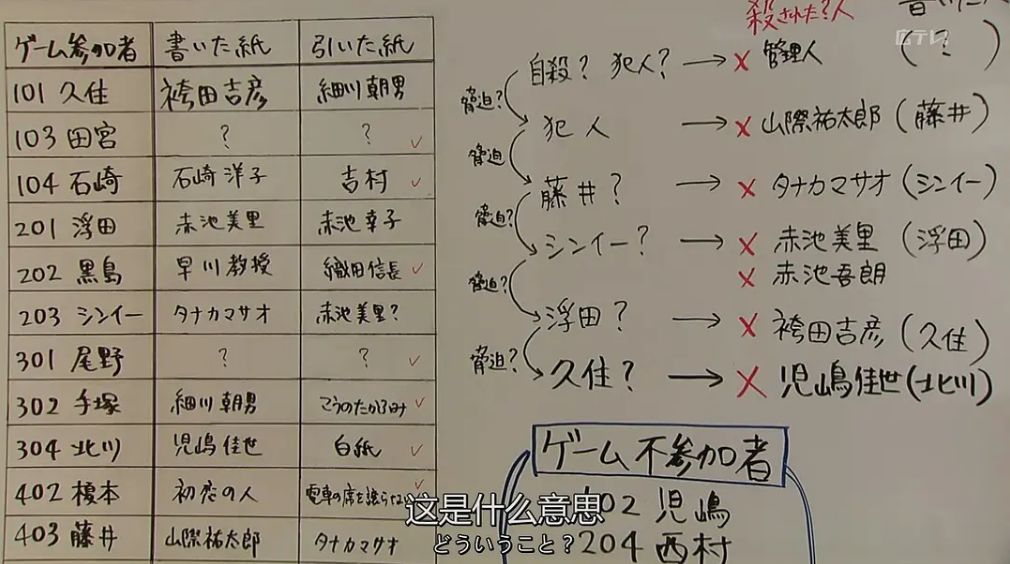 ゲーム参加者 書いた紙 引いた紙
101 久住 袴田吉彦 細川朝男
103 田宮 ? ?
104 石崎 石崎洋子 吉村
201 浮田 赤池美里 赤池幸子
202 黒島 早川教授 織田信長
203 シンイー タナカマサオ 赤池美里?
301 尾野 ? ?
302 手塚 細川朝男 こうのたかふみ
304 北川 児嶋佳世 白紙
402 榎本 初恋の人 電車の席を譲らない
403 藤井 山際祐太郎 タナカマサオ
殺された?人
広テレ
(?)
自殺? 犯人? → × 管理人
脅迫?
犯人 → × 山際祐太郎(藤井)
脅迫
藤井? → × タナカマサオ(シンイー)
脅迫?
シンイー? → × 赤池美里(浮田)
× 赤池吾朗
脅迫?
浮田? → × 袴田吉彦(久住)
脅迫?
久住? → × 児嶋佳世(北川)
ゲーム不参加者
02 児嶋
204 西村
这是什么意思
どういうこと?